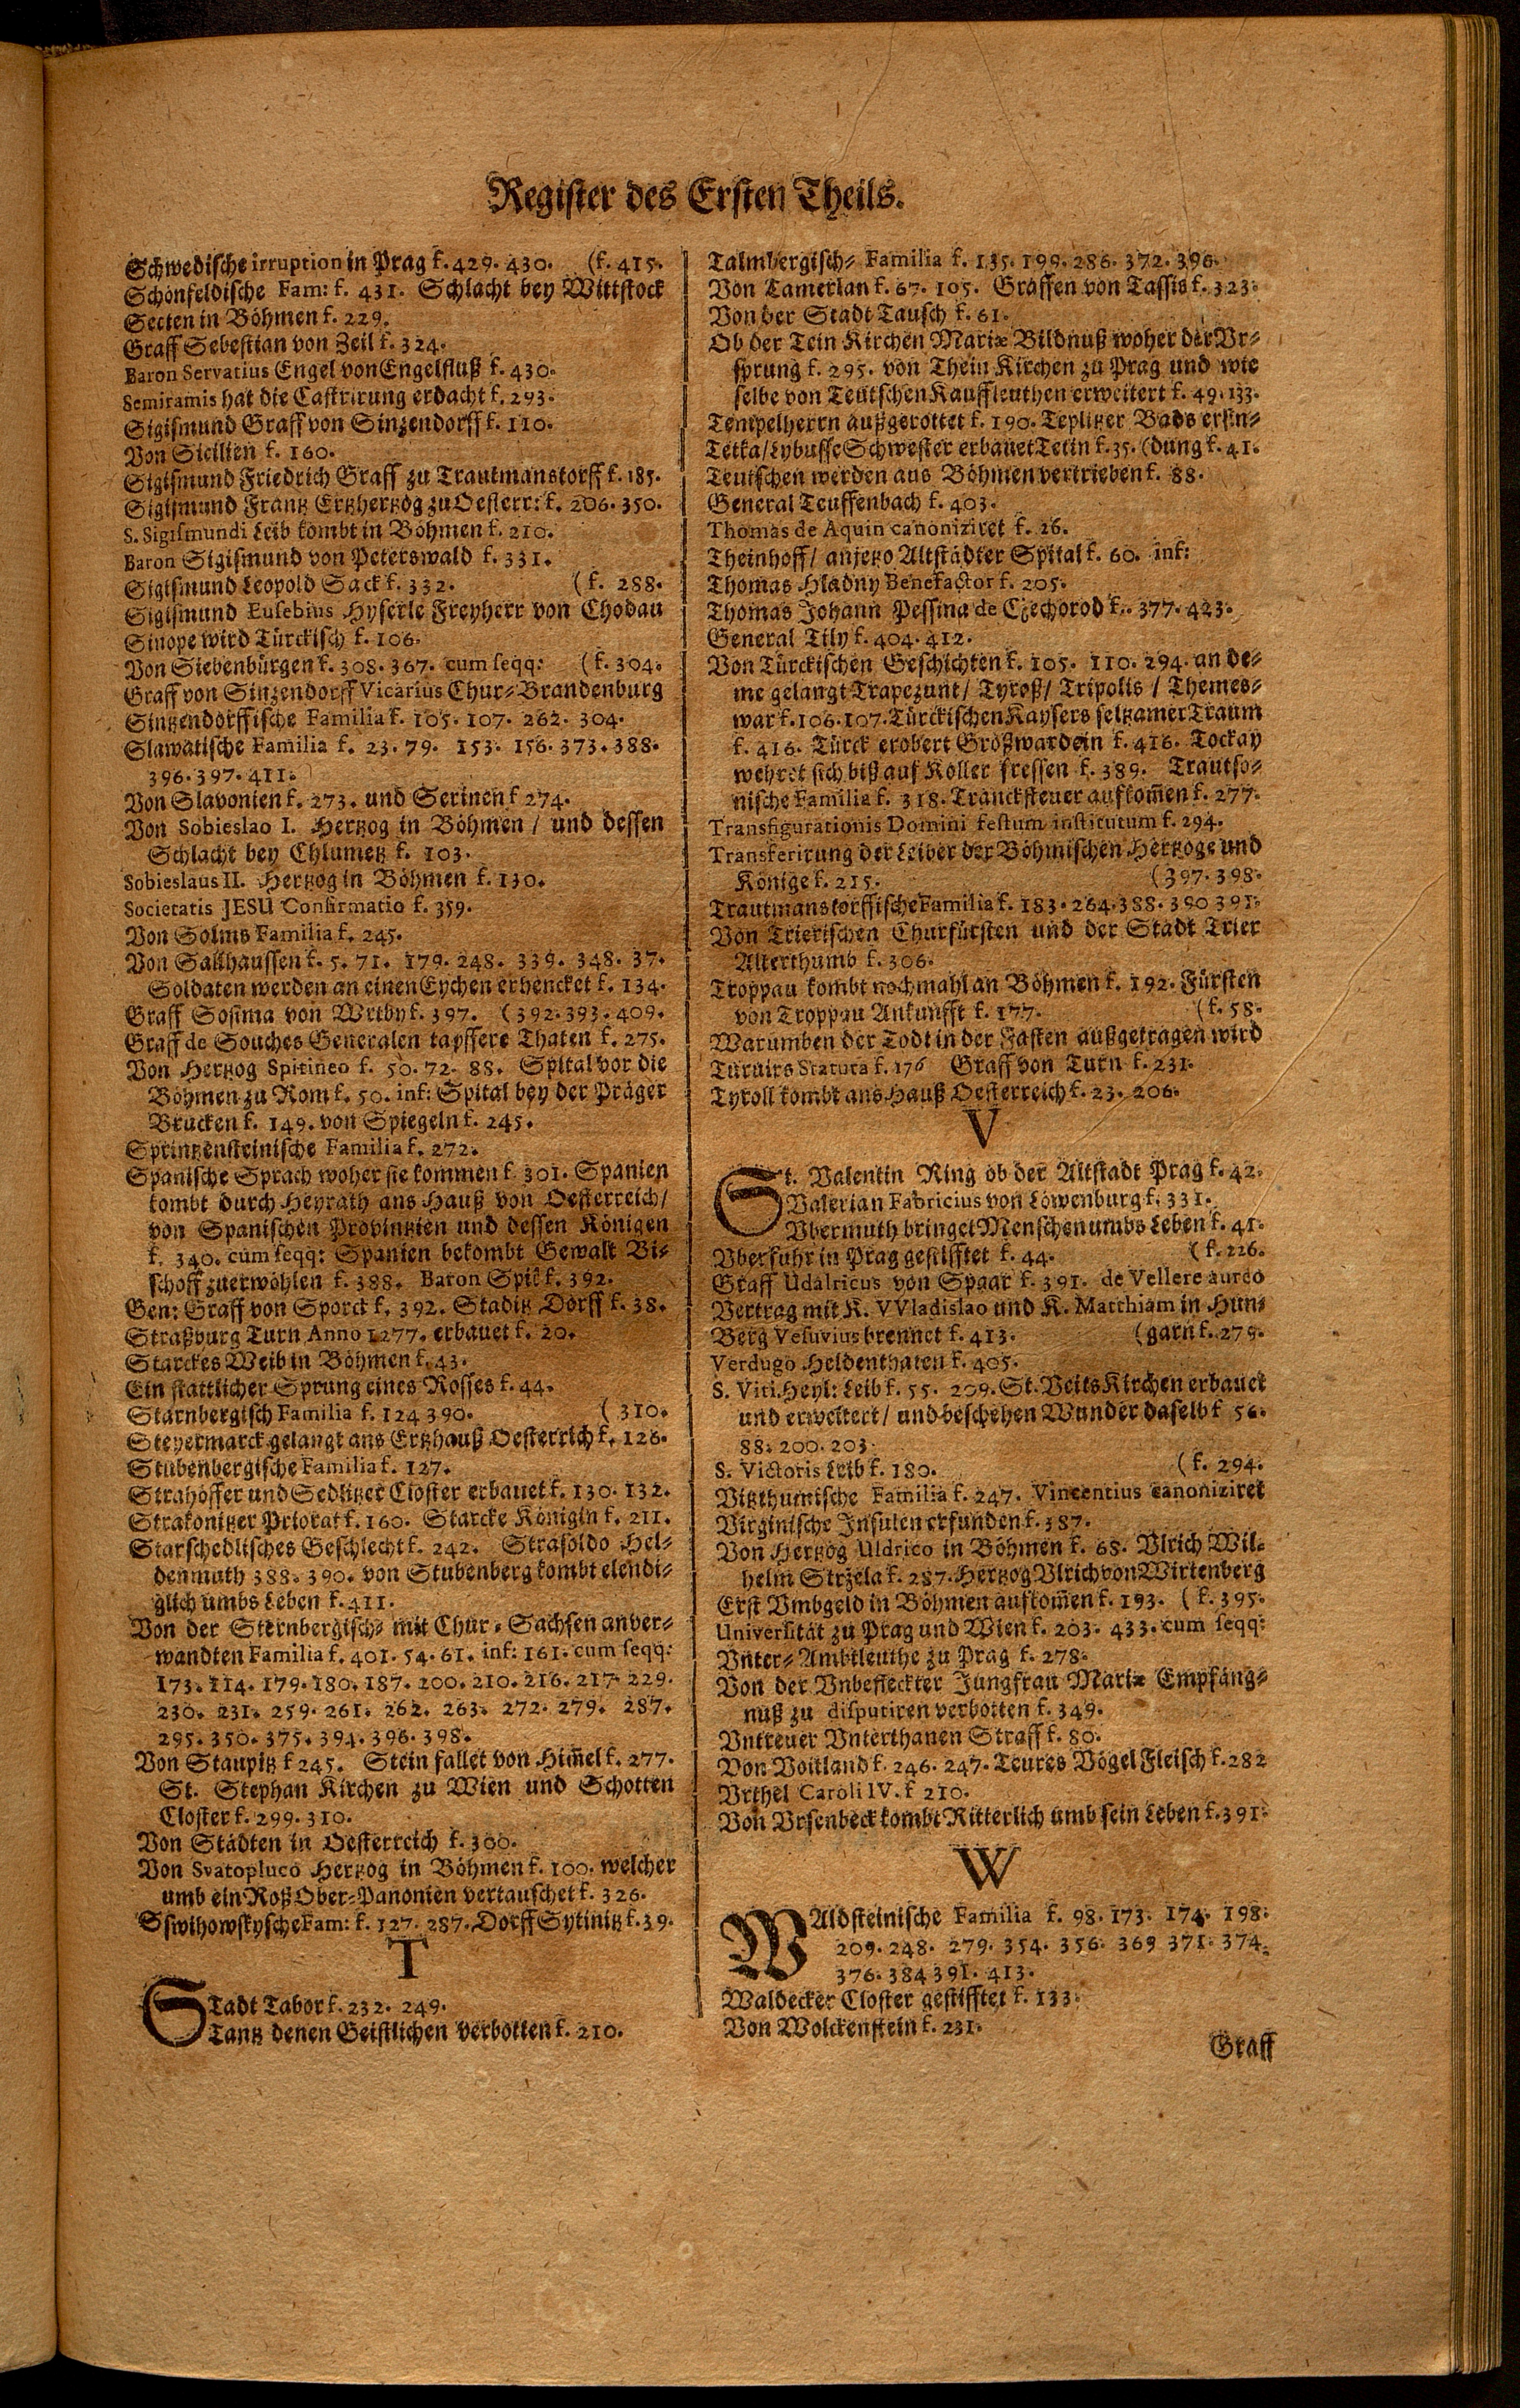 Register des Ersten Theils.
Schwedische irruption in Prag f. 429. 430. (f. 415.
Schönfeldische Fam: f. 431. Schlacht bey Wittstock
Secten in Böhmen f. 229.
Graff Sebestian von Zeil f. 324.
Baron Servatius Engel von Engelfluß f. 430.
Semiramis hat die Castrirung erdacht f. 293.
Sigismund Graff von Sinzendorff f. 110.
Von Sicilien f. 160.
Sigismund Friedrich Graff zu Trautmanstorff f. 185.
Sigismund Frantz Ertzhertzog zu Oesterr: f. 206. 350.
S. Sigismundi Leib kombt in Böhmen f. 210.
Baron Sigismund von Peterswald f. 331.
Sigismund Leopold Sack f. 332. (f. 288.
Sigismund Eusebius Hyserle Freyherr von Chodau
Sinope wird Türckisch f. 106.
Von Siebenbürgen f. 308. 367. cum seqq: (f. 304.
Graff von Sinzendorff Vicarius Chur-Brandenburg
Sintzendorffische Familia f. 105. 107. 262. 304.
Slawatische Familia f. 23. 79. 153. 156. 373. 388.
396. 397. 411.
Von Slavonien f. 273. und Serinen f 274.
Von Sobieslao I. Hertzog in Böhmen / und dessen
Schlacht bey Chlumetz f. 103.
Sobieslaus II. Hertzog in Böhmen f. 130.
Societatis JESU Confirmatio f. 359.
Von Solms Familia f. 245.
Von Salhaussen f. 5. 71. 179. 248. 339. 348. 37.
Soldaten werden an einen Eychen erhencket f. 134.
Graff Sosima von Wrtby f. 397. (392. 393. 409.
Graff de Souches Generalen tapffere Thaten f. 275.
Von Hertzog Spitineo f. 50. 72. 88. Spital vor die
Böhmen zu Rom f. 50. inf: Spital bey der Präger
Brucken f. 149. von Spiegeln f. 245.
Sprintzensteinische Familia f. 272.
Spanische Sprach woher sie kommen f 301. Spanien
kombt durch Heyrath ans Hauß von Oesterreich/
von Spanischen Provintzien und dessen Königen
f. 340. cum seqq: Spanien bekombt Gewalt Bi-
schoff zuerwöhlen f. 388. Baron Spic f. 392.
Gen: Graff von Sporck f. 392. Staditz Dorff f. 38.
Straßburg Turn Anno 1277. erbauet f. 20.
Starckes Weib in Böhmen f. 43.
Ein stattlicher Sprung eines Rosses f. 44.
Starnbergisch Familia f. 124 390. (310.
Steyermarck gelangt ans Ertzhauß Oesterrich f. 126.
Stubenbergische Familia f. 127.
Strahöffer und Sedlitzer Closter erbauet f. 130. 132.
Strakonitzer Priorat f. 160. Starcke Königin f. 211.
Starschedlisches Geschlecht f. 242. Strasoldo Hel-
denmuth 388. 390. von Stubenberg kombt elendi-
glich umbs Leben f. 411.
Von der Sternbergisch- mit Chur-Sachsen anver-
wandten Familia f. 401. 54. 61. inf: 161. cum seqq:
173. 114. 179. 180. 187. 200. 210. 216. 217. 229.
230. 231. 259. 261. 262. 263. 272. 279. 287.
295. 350. 375. 394. 396. 398.
Von Staupitz f 245. Stein fallet von Him̅el f. 277.
St. Stephan Kirchen zu Wien und Schotten
Closter f. 299. 310.
Von Städten in Oesterreich f. 300.
Von Svatopluco Hertzog in Böhmen f. 100. welcher
umb ein Roß Ober-Panonien vertauschet f. 326.
Sswihowskysche Fam: f. 127. 287. Dorff Sytinitz f. 39.
T
STadt Tabor f. 232. 249.
Tantz denen Geistlichen verbotten f. 210.
Talmbergisch- Familia f. 135. 199. 286. 372. 396.
Von Tamerlan f. 67. 105. Graffen von Tassis f. 323.
Von der Stadt Tausch f. 61.
Ob der Tein Kirchen Mariæ Bildnuß woher der Ur-
sprung f. 295. von Thein Kirchen zu Prag und wie
selbe von Teutschen Kauffleuthen erweitert f. 49. 133.
Tempelherrn außgerottet f. 190. Teplitzer Bads erfin-
Tetka/ Lybusse Schwester erbauet Tetin f. 35. (dung f. 41.
Teutschen werden aus Böhmen vertrieben f. 88.
General Teuffenbach f. 403.
Thomas de Aquin canoniziret f. 26.
Theinhoff/ anjetzo Altstädter Spital f. 60. inf:
Thomas Hladny Benefactor f. 205.
Thomas Johann Pessina de Czechorod f. 377. 423.
General Tily f. 404. 412.
Von Türckischen Geschichten f. 105. 110. 294. an de-
me gelangt Trapezunt/ Tyroß/ Tripolis / Themes-
war f. 106. 107. Türckischen Kaysers seltzamer Traum
f. 416. Türck erobert Großwardein f. 416. Tockay
wehret sich biß auf Koller fressen f. 389. Trautso-
nische Familia f. 318. Trancksteuer aufkom̅en f. 277.
Transfigurationis Domini festum institutum f. 294.
Transferirung der Leiber der Böhmischen Hertzoge und
Könige f. 215. (397. 398.
Trautmanstorffische Familia f. 183. 264. 388. 390 391.
Von Trierischen Churfürsten und der Stadt Trier
Alterthumb f. 306.
Troppau kombt nochmahl an Böhmen f. 192. Fürsten
von Troppau Ankunfft f. 177. (f. 58.
Warumben der Todt in der Fasten außgetragen wird
Turnirs Statuta f. 176 Graff von Turn f. 231.
Tyroll kombt ans Hauß Oesterreich f. 23. 206.
V
St. Valentin Ring ob der Altstadt Prag f. 42.
Valerian Fabricius von Löwenburg f. 331.
Vbermuth bringet Menschen umbs Leben f. 41.
Vberfuhr in Prag gestifftet f. 44. (f. 226.
Graff Udalricus von Spaar f. 391. de Vellere aureo
Vertrag mit K. VVladislao und K. Matthiam in Hun-
Berg Vesuvius brennet f. 413. (garn f. 279.
Verdugo Heldenthaten f. 405.
S. Viti Heyl: Leib f. 55. 209. St. Veits Kirchen erbauet
und erweitert/ und beschehen Wunder daselb f 56.
88. 200. 203.
S. Victoris Leib f. 180. (f. 294.
Vitzthumische Familia f. 247. Vincentius canoniziret
Virginische Insulen erfunden f. 387.
Von Hertzog Uldrico in Böhmen f. 68. Vlrich Wil-
helm Strzela f. 287. Hertzog Vlrich von Wirtenberg
Erst Vmbgeld in Böhmen aufkom̅en f. 193. (f. 395.
Universität zu Prag und Wien f. 203. 433. cum seqq:
Vnter-Ambtleuthe zu Prag f. 278.
Von der Vnbefleckter Jungfrau Mariæ Empfäng-
nuß zu disputiren verbotten f. 349.
Vntreuer Vnterthanen Straff f. 80.
Von Voitland f. 246. 247. Teures Vögel Fleisch f. 282
Vrthel Caroli IV. f 210.
Von Vrsenbeck kombt Ritterlich umb sein Leben f. 391.
W
WAldsteinische Familia f. 98. 173. 174. 198.
209. 248. 279. 354. 356. 369 371. 374.
376. 384 391. 413.
Waldecker Closter gestifftet f. 133.
Von Wolckenstein f. 231.
Graff